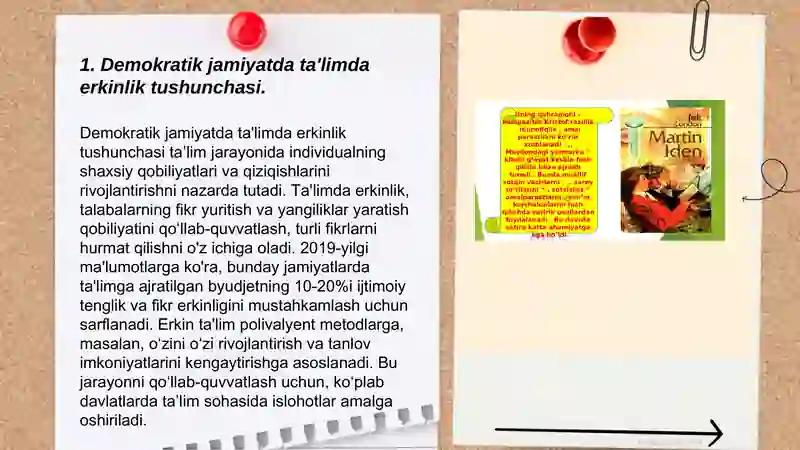 1. Demokratik jamiyatda ta'limda
erkinlik tushunchasi.
Demokratik jamiyatda ta'limda erkinlik
tushunchasi ta'lim jarayonida individualning
shaxsiy qobiliyatlari va qiziqishlarini
rivojlantirishni nazarda tutadi. Ta'limda erkinlik,
talabalarning fikr yuritish va yangiliklar yaratish
qobiliyatini qo'llab-quvvatlash, turli fikrlarni
hurmat qilishni o'z ichiga oladi. 2019-yilgi
ma'lumotlarga ko'ra, bunday jamiyatlarda
ta'limga ajratilgan byudjetning 10-20%i ijtimoiy
tenglik va fikr erkinligini mustahkamlash uchun
sarflanadi. Erkin ta'lim polivalyent metodlarga,
masalan, o'zini o'zi rivojlantirish va tanlov
imkoniyatlarini kengaytirishga asoslanadi. Bu
jarayonni qo'llab-quvvatlash uchun, ko'plab
davlatlarda ta'lim sohasida islohotlar amalga
oshiriladi.
Jek
London
Martin
Iden